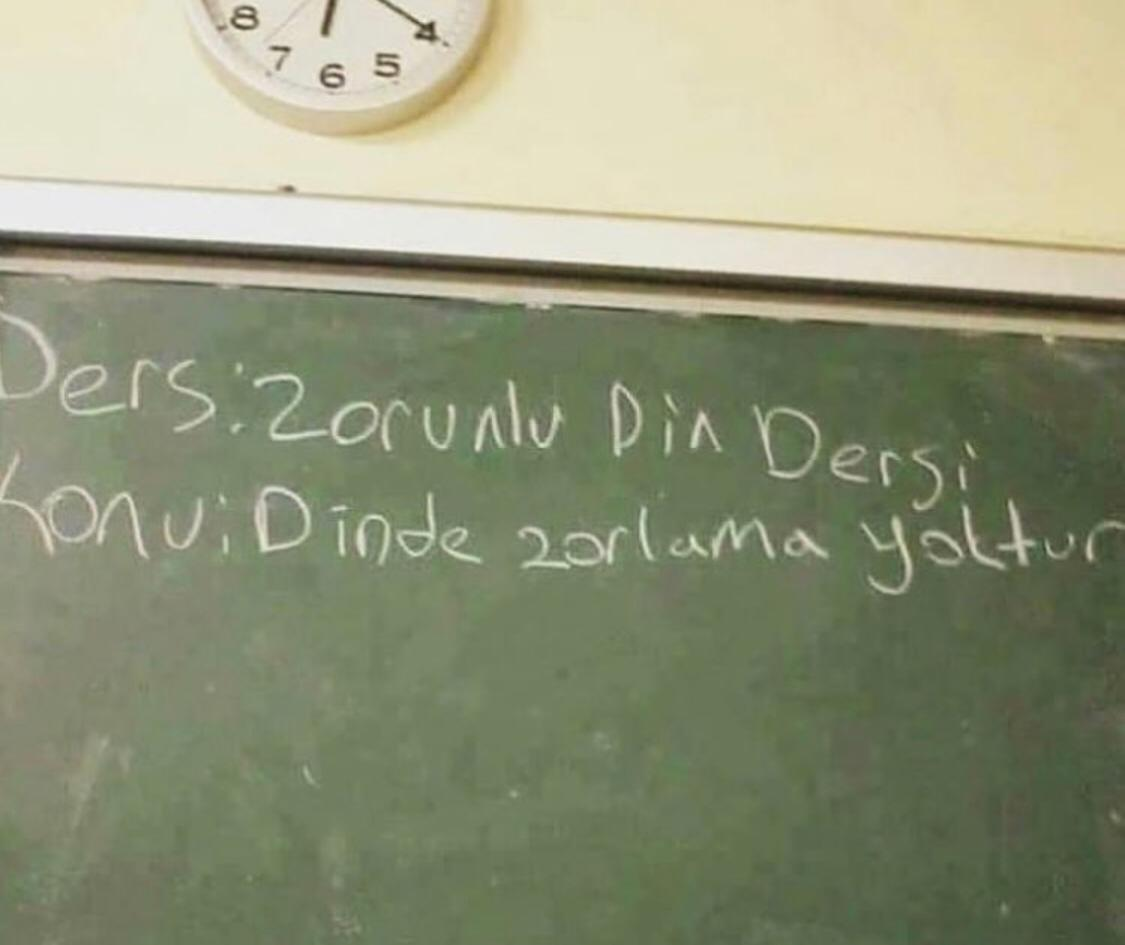 8 4
7 6 5
Ders: Zorunlu Din Dersi
Konu: Dinde zorlama yoktur